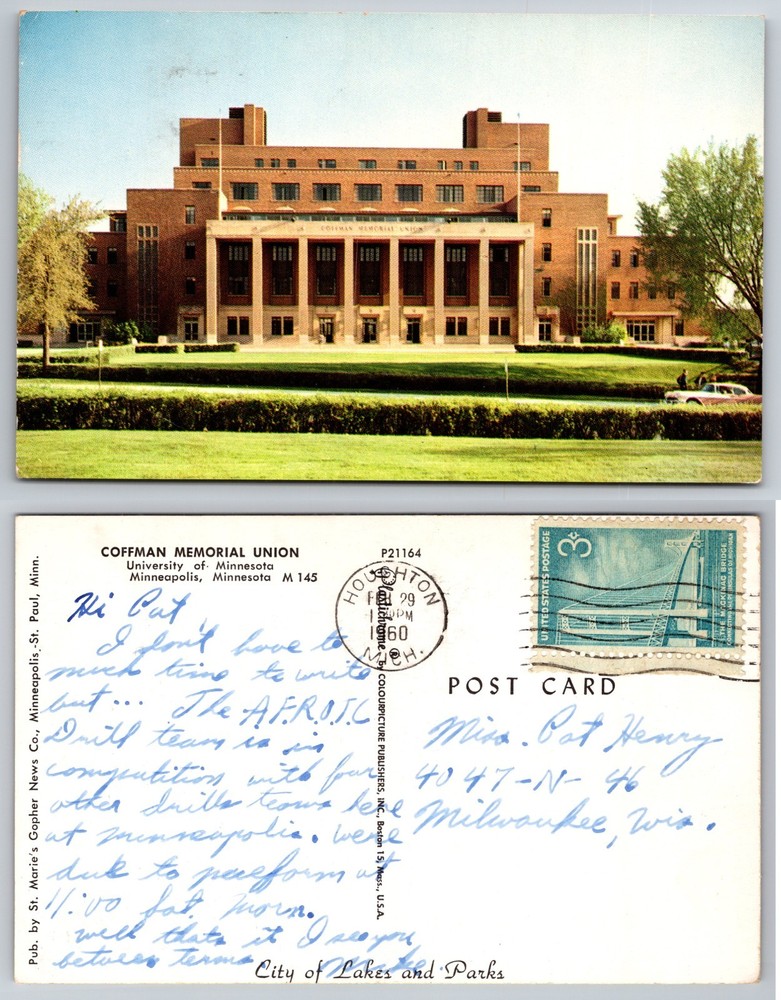 COFFMAN MEMORIAL UNION
COFFMAN MEMORIAL UNION
University of Minnesota
Minneapolis, Minnesota M 145
P21164
Pub. by St. Marie's Gopher News Co., Minneapolis,-St. Paul, Minn.
Hi Pat,
I don't have to
much time to write
but... The A.F.R.O.T.C
Drill team is in
compitition with four
other drill teams here
at minneapolis. were
due to preeform at
11:00 Sat. morn.
well thats it I see you
between terms. Mike.
Plastichrome ® by COLOURPICTURE PUBLISHERS, INC., Boston 15, Mass., U.S.A.
HOUGHTON
FEB 29
PM
1960
MICH.
UNITED STATES POSTAGE
3¢
THE MACKINAC BRIDGE
CONNECTING THE PENINSULAS OF MICHIGAN
POST CARD
Miss. Pat Henry
4047-N- 46
Milwaukee, Wis.
City of Lakes and Parks